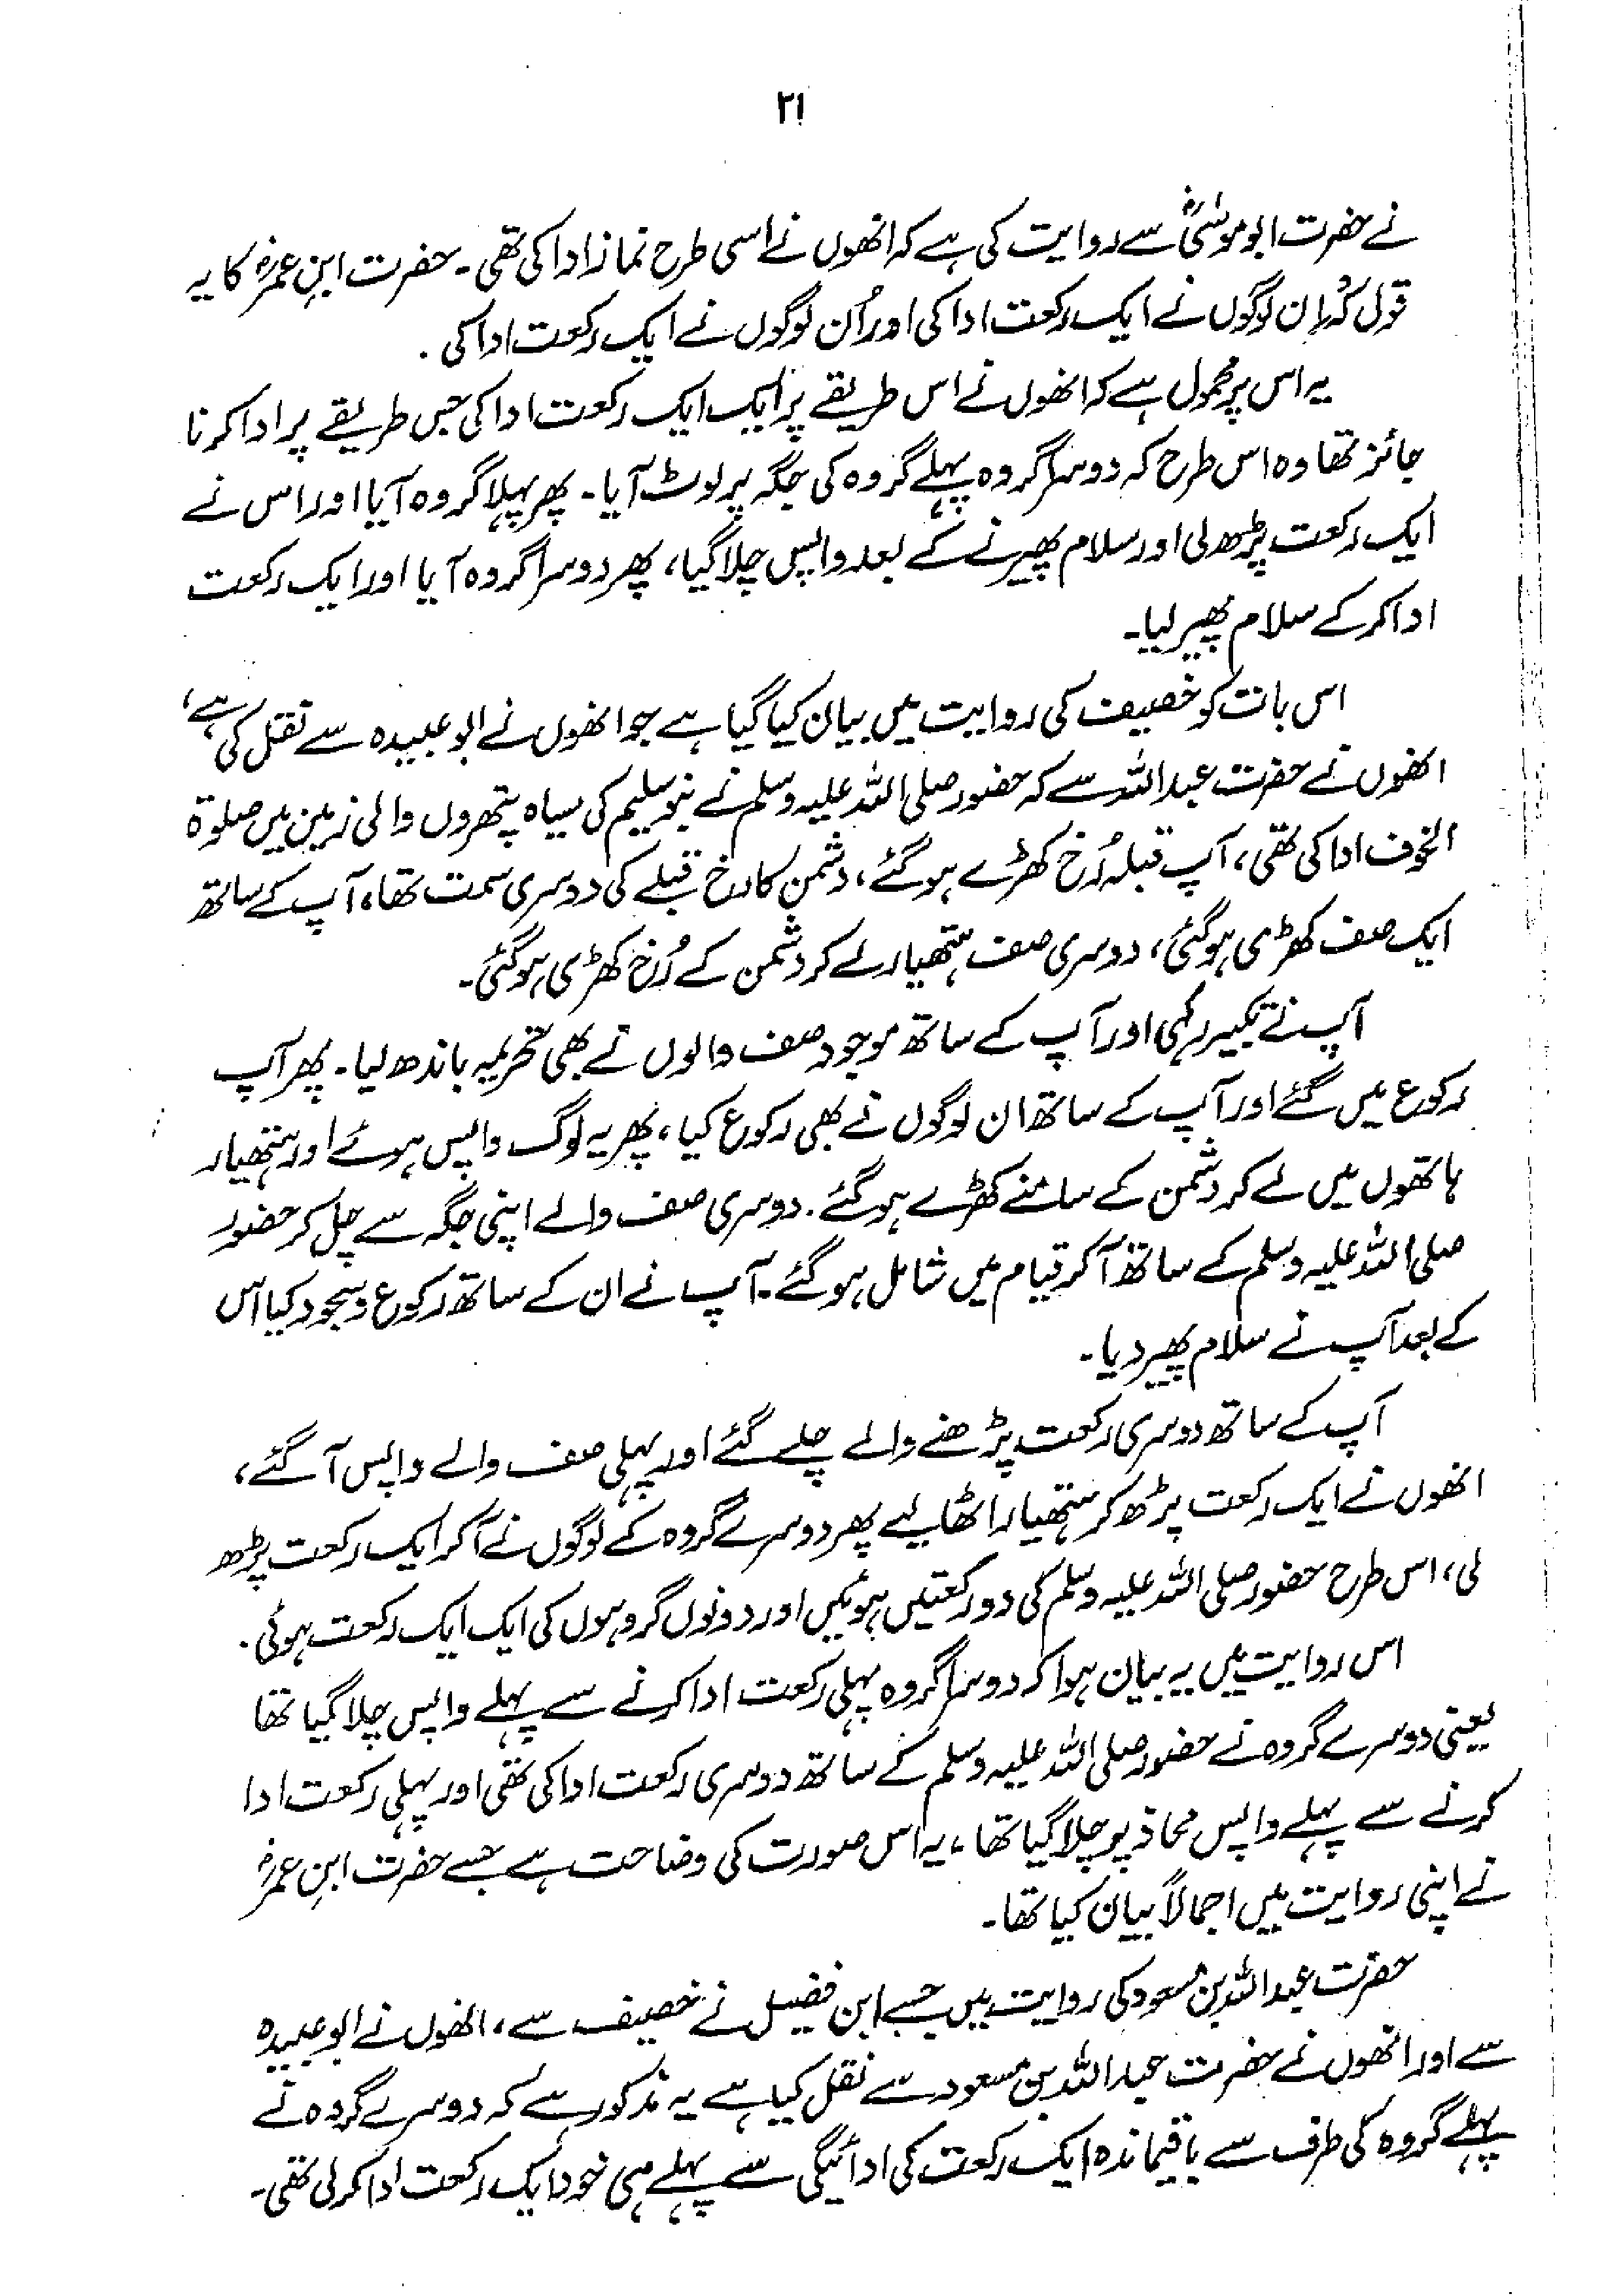 ۲۱
نے حضرت ابوموسیٰؓ سے روایت کی ہے کہ انھوں نے اسی طرح نماز ادا کی تھی۔ حضرت ابنِ عمرؓ کا یہ
قول کہ اِن لوگوں نے ایک رکعت ادا کی اور اُن لوگوں نے ایک رکعت ادا کی۔
یہ اس پر محمول ہے کہ انھوں نے اس طریقے پر ایک ایک رکعت ادا کی جس طریقے پر ادا کرنا
جائز تھا وہ اس طرح کہ دوسرا گروہ پہلے گروہ کی جگہ پر لوٹ آیا۔ پھر پہلا گروہ آیا اور اس نے
ایک رکعت پڑھ لی اور سلام پھیرنے کے بعد واپس چلا گیا، پھر دوسرا گروہ آیا اور ایک رکعت
ادا کر کے سلام پھیر لیا۔
اس بات کو خصیف کی روایت میں بیان کیا گیا ہے جو انھوں نے ابو عبیدہ سے نقل کی ہے،
انھوں نے حضرت عبداللہ سے کہ حضور صلی اللہ علیہ وسلم نے بنو سلیم کی سیاہ پتھروں والی زمین میں صلوٰۃ
الخوف ادا کی تھی، آپ قبلہ رُخ کھڑے ہو گئے، دشمن کا رخ قبلے کی دوسری سمت تھا، آپ کے ساتھ
ایک صف کھڑی ہو گئی، دوسری صف ہتھیار لے کر دشمن کے رُخ کھڑی ہو گئی۔
آپ نے تکبیر کہی اور آپ کے ساتھ موجود صف والوں نے بھی تحریمہ باندھ لیا۔ پھر آپ
رکوع میں گئے اور آپ کے ساتھ ان لوگوں نے بھی رکوع کیا، پھر یہ لوگ واپس ہوئے اور ہتھیار
ہاتھوں میں لے کر دشمن کے سامنے کھڑے ہو گئے۔ دوسری صف والے اپنی جگہ سے چل کر حضور
صلی اللہ علیہ وسلم کے ساتھ آ کر قیام میں شامل ہو گئے۔ آپ نے ان کے ساتھ رکوع و سجود کیا اس
کے بعد آپ نے سلام پھیر دیا۔
آپ کے ساتھ دوسری رکعت پڑھنے والے چلے گئے اور پہلی صف والے واپس آ گئے،
انھوں نے ایک رکعت پڑھ کر ہتھیار اٹھا لیے پھر دوسرے گروہ کے لوگوں نے آ کر ایک رکعت پڑھ
لی، اس طرح حضور صلی اللہ علیہ وسلم کی دو رکعتیں ہوئیں اور دونوں گروہوں کی ایک ایک رکعت ہوئی۔
اس روایت میں یہ بیان ہوا کہ دوسرا گروہ پہلی رکعت ادا کرنے سے پہلے واپس چلا گیا تھا
یعنی دوسرے گروہ نے حضور صلی اللہ علیہ وسلم کے ساتھ دوسری رکعت ادا کی تھی اور پہلی رکعت ادا
کرنے سے پہلے واپس محاذ پر چلا گیا تھا، یہ اس صورت کی وضاحت ہے جسے حضرت ابنِ عمرؓ
نے اپنی روایت میں اجمالاً بیان کیا تھا۔
حضرت عبداللہ بن مسعود کی روایت میں جسے ابن فضیل نے خصیف سے، انھوں نے ابو عبیدہ
سے اور انھوں نے حضرت عبداللہ بن مسعود سے نقل کیا ہے یہ مذکور ہے کہ دوسرے گروہ نے
پہلے گروہ کی طرف سے باقیماندہ ایک رکعت کی ادائیگی سے پہلے ہی خود ایک رکعت ادا کر لی تھی۔